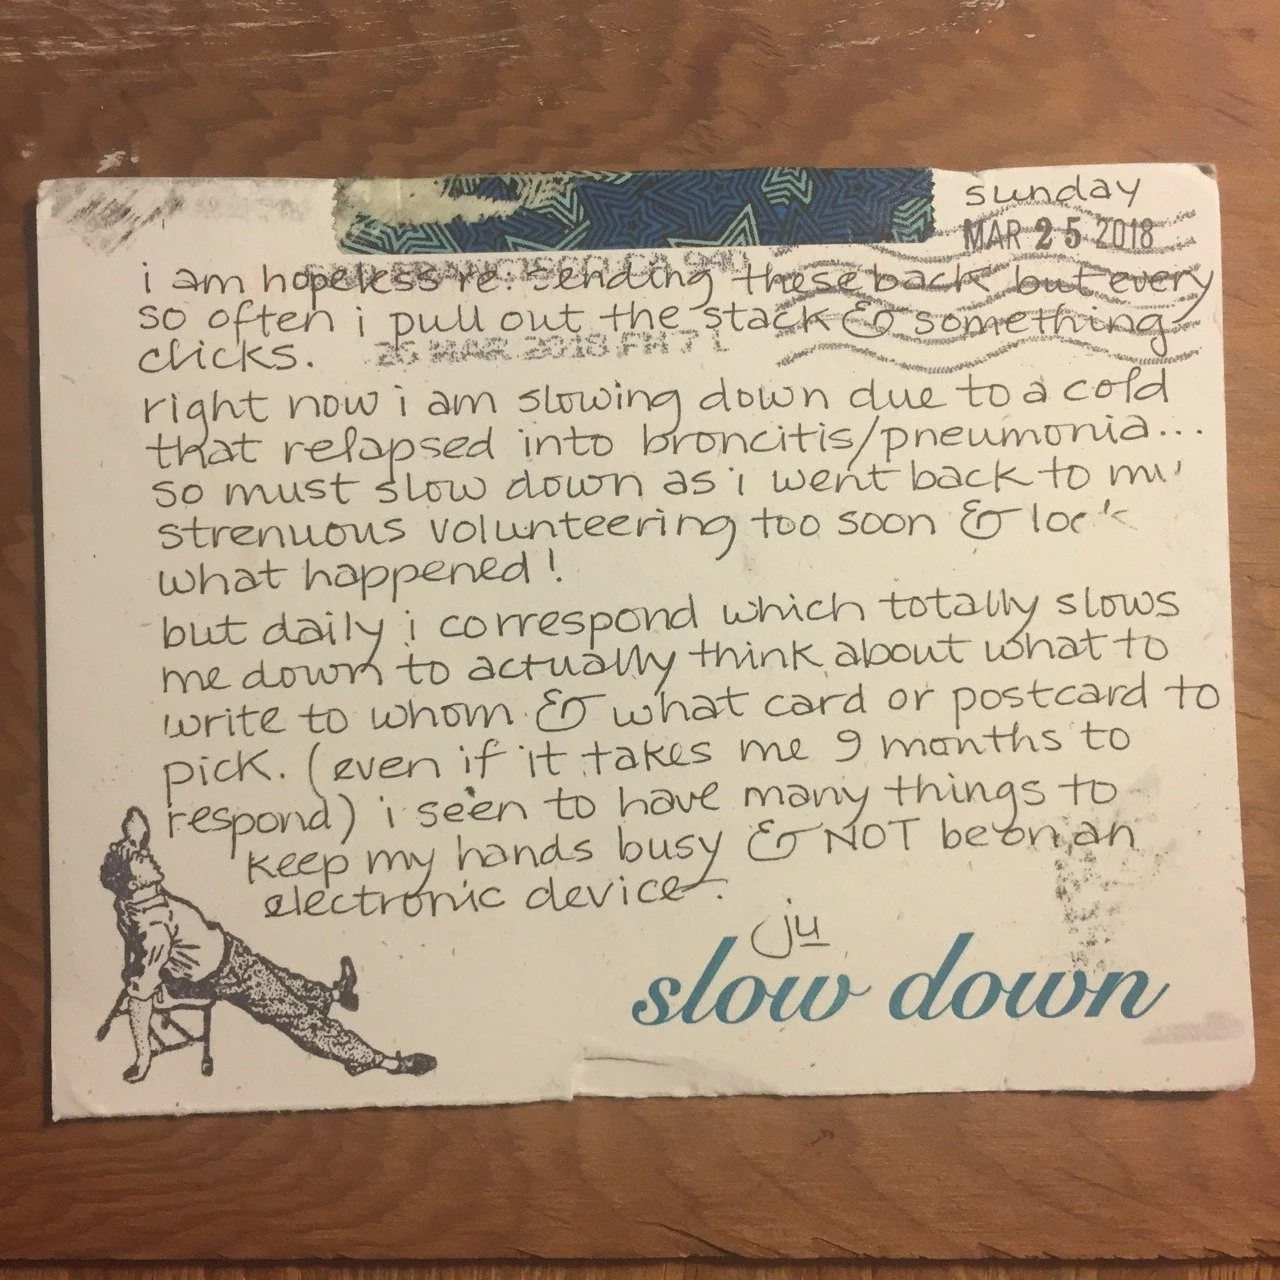 sunday
MAR 25 2018
i am hopeless re: sending these back but every
so often i pull out the stack & something
clicks.
26 MAR 2018 PM 7 L
right now i am slowing down due to a cold
that relapsed into broncitis/pneumonia...
so must slow down as i went back to my
strenuous volunteering too soon & look
what happened!
but daily i correspond which totally slows
me down to actually think about what to
write to whom & what card or postcard to
pick. (even if it takes me 9 months to
respond) i seen to have many things to
keep my hands busy & NOT be on an
electronic device.
ju
slow down